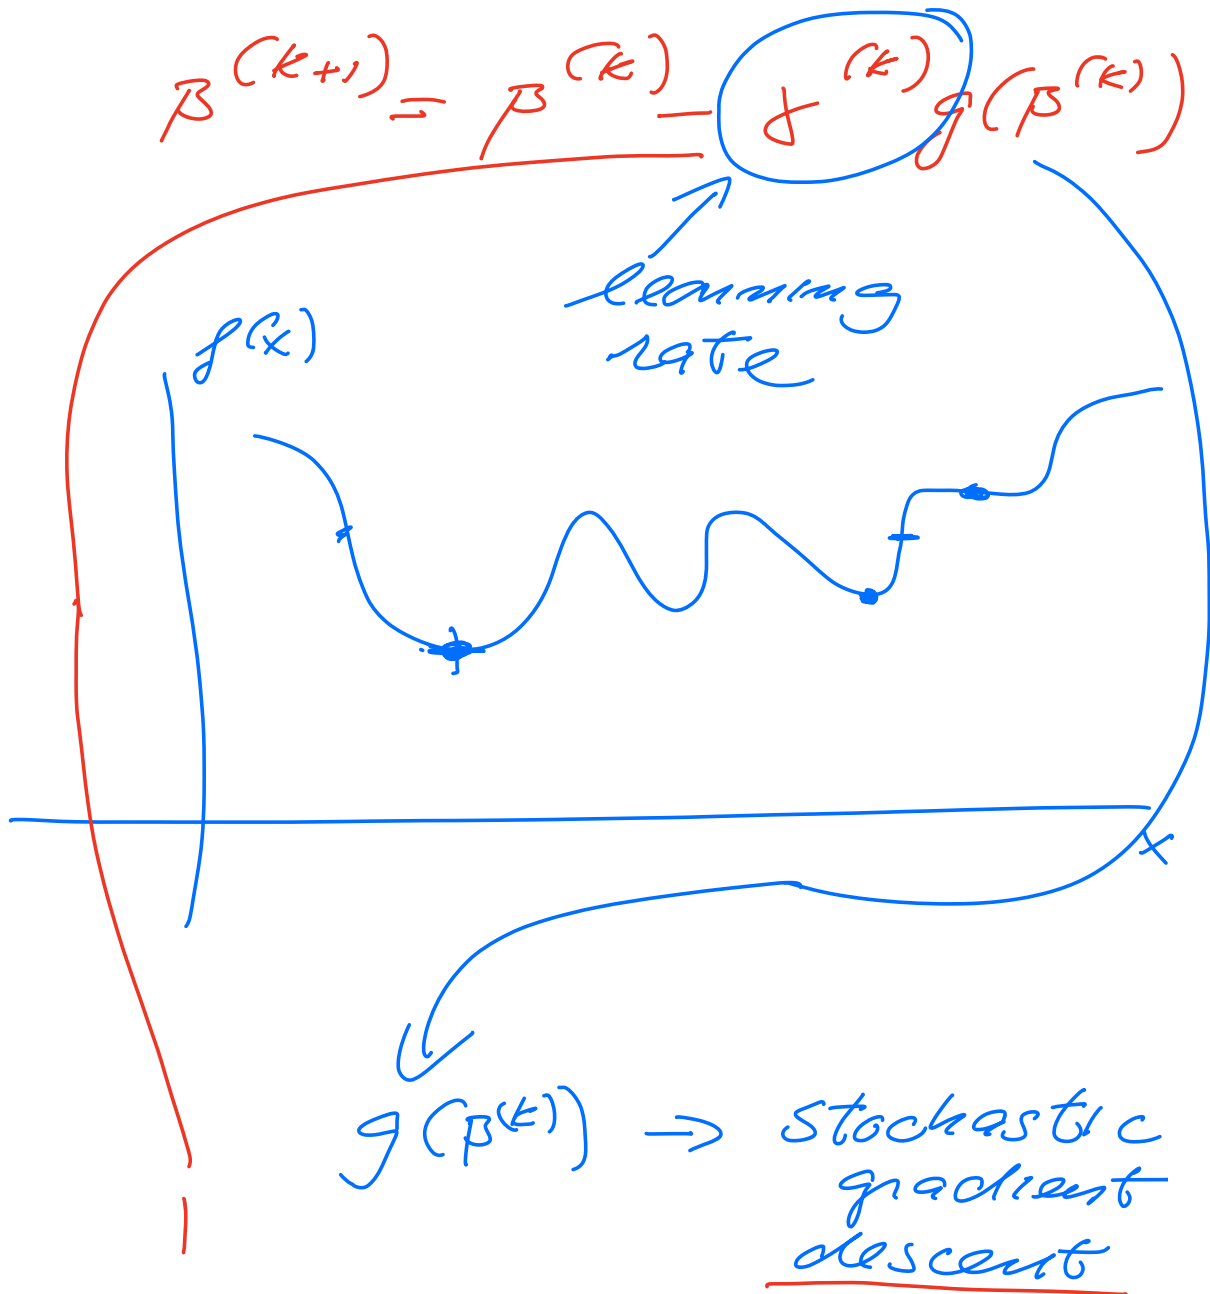 β^(k+1) = β^(k) − γ^(k) g(β^(k))
learning
rate
f(x)
x
g(β^(k)) → stochastic
gradient
descent